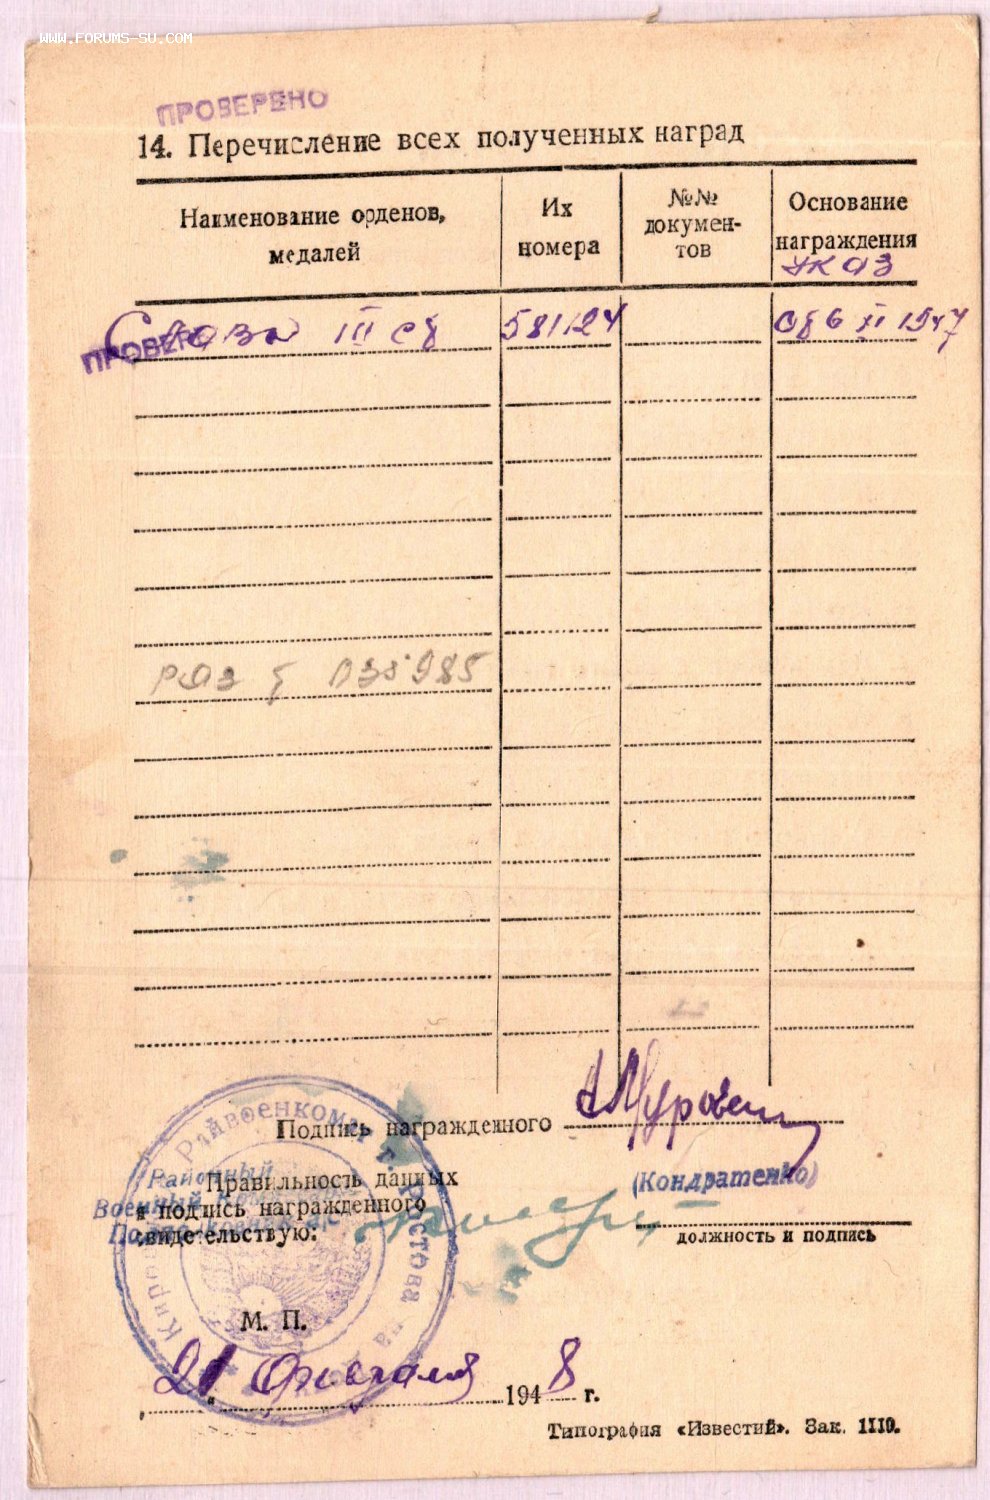 WWW.FORUMS-SU.COM
ПРОВЕРЕНО
14. Перечисление всех полученных наград
Наименование орденов, медалей
Их номера
№№ докумен-тов
Основание награждения
Указ
Слава III ст 581124 от 6 XI 1947
ПРОВЕРЕ
раз
Подпись награжденного
Правильность данных
и подпись награжденного
свидетельствую:
Районный
Военный
Подполковник а/с
(Кондратенко)
должность и подпись
Райвоенкомат г. Ростова на
М. П.
21 февраля 1948 г.
Типография «Известий». Зак. 1110.